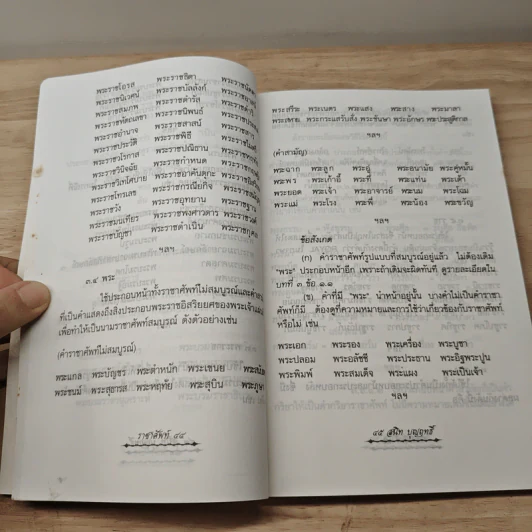 พระราชโอรส พระราชธิดา
พระราชนิเวศน์ พระราชบัลลังก์
พระราชสมภพ พระราชดำรัส
พระราชหัตถเลขา พระราชนิพนธ์
พระราชอำนาจ พระราชสาสน์
พระราชประวัติ พระราชพิธี
พระราชโรกาส พระราชปณิธาน
พระราชวินิจฉัย พระราชกำหนด
พระราชวิเทโศบาย พระราชอาคันตุกะ
พระราชโทรเลข พระราชกรณียกิจ
พระราชวัง พระราชอุทยาน
พระราชมนเทียร พระราชพงศาวดาร
พระราชบัญชา พระราชดำเนิน
ฯลฯ
๓.๔ พระ
ใช้ประกอบหน้าทั้งราชาศัพท์ไม่สมบูรณ์และคำสามัญ
ที่เป็นคำแสดงถึงสิ่งประกอบพระราชอิสริยยศของพระเจ้าแผ่นดิน
เพื่อทำให้เป็นนามราชาศัพท์สมบูรณ์ ดังตัวอย่างเช่น
(คำราชาศัพท์ไม่สมบูรณ์)
พระแกล พระบัญชร พระตำหนัก พระเขนย
พระขนม์ พระสุธารส พระหฤทัย พระสุบิน
ราชาศัพท์ ๔๔
พระสรีระ พระเนตร พระแสง พระสาง พระมาลา
พระกระแสรับสั่ง พระชันษา พระอังกษา
ฯลฯ
(คำสามัญ)
พระฉาก พระลูก พระอู่ พระอนามัย พระคู่หมั้น
พระพร พระเก้าอี้ พระที่ พระแท่น พระเต้า
พระยอด พระเจ้า พระอาจารย์ พระนม พระโฉม
พระแม่ พระโรง พระพี่ พระน้อง พระขวัญ
ฯลฯ
ข้อสังเกต
(ก) คำราชาศัพท์รูปแบบที่สมบูรณ์อยู่แล้ว ไม่ต้องเติม
"พระ" ประกอบหน้าอีก เพราะถ้าเติมจะผิดทันที ดูรายละเอียดใน
บทที่ ๓ ข้อ ๑.๑
(ข) คำที่มี "พระ" นำหน้าอยู่นั้น บางคำไม่เป็นคำราชา
ศัพท์ก็มี ต้องดูที่ความหมายและการใช้ราเกี่ยวข้องกับราชาศัพท์
หรือไม่ เช่น
พระเอก พระรอง พระเครื่อง พระบูชา
พระปลอม พระอลัชชี พระประธาน พระอิฐพระปูน
พระพิมพ์ พระสมเด็จ พระแผง พระเป็นเจ้า
ฯลฯ
๔๕ สนิท บุญฤทธิ์